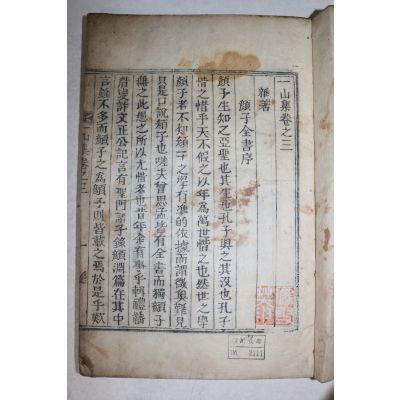 一山集卷之三
雜著
顔子全書序
顔子生知之亞聖也其生也孔子與之其沒也孔子
惜之惜乎天不假之以年為萬世惜之也然世之學
顔子者不知顔子之學有準的依據而謂微奧難見
只是口說顔子也嗟夫曾思孟皆有全書而獨顔子
無之此愚之所以尤惜者也昔年余有事乎輯禮
得見許文正公記言有聖門諸子錄顔淵篇在其中
言雖不多而顔子之為顔子則皆載之焉於是乎歎
一山集卷之三
一